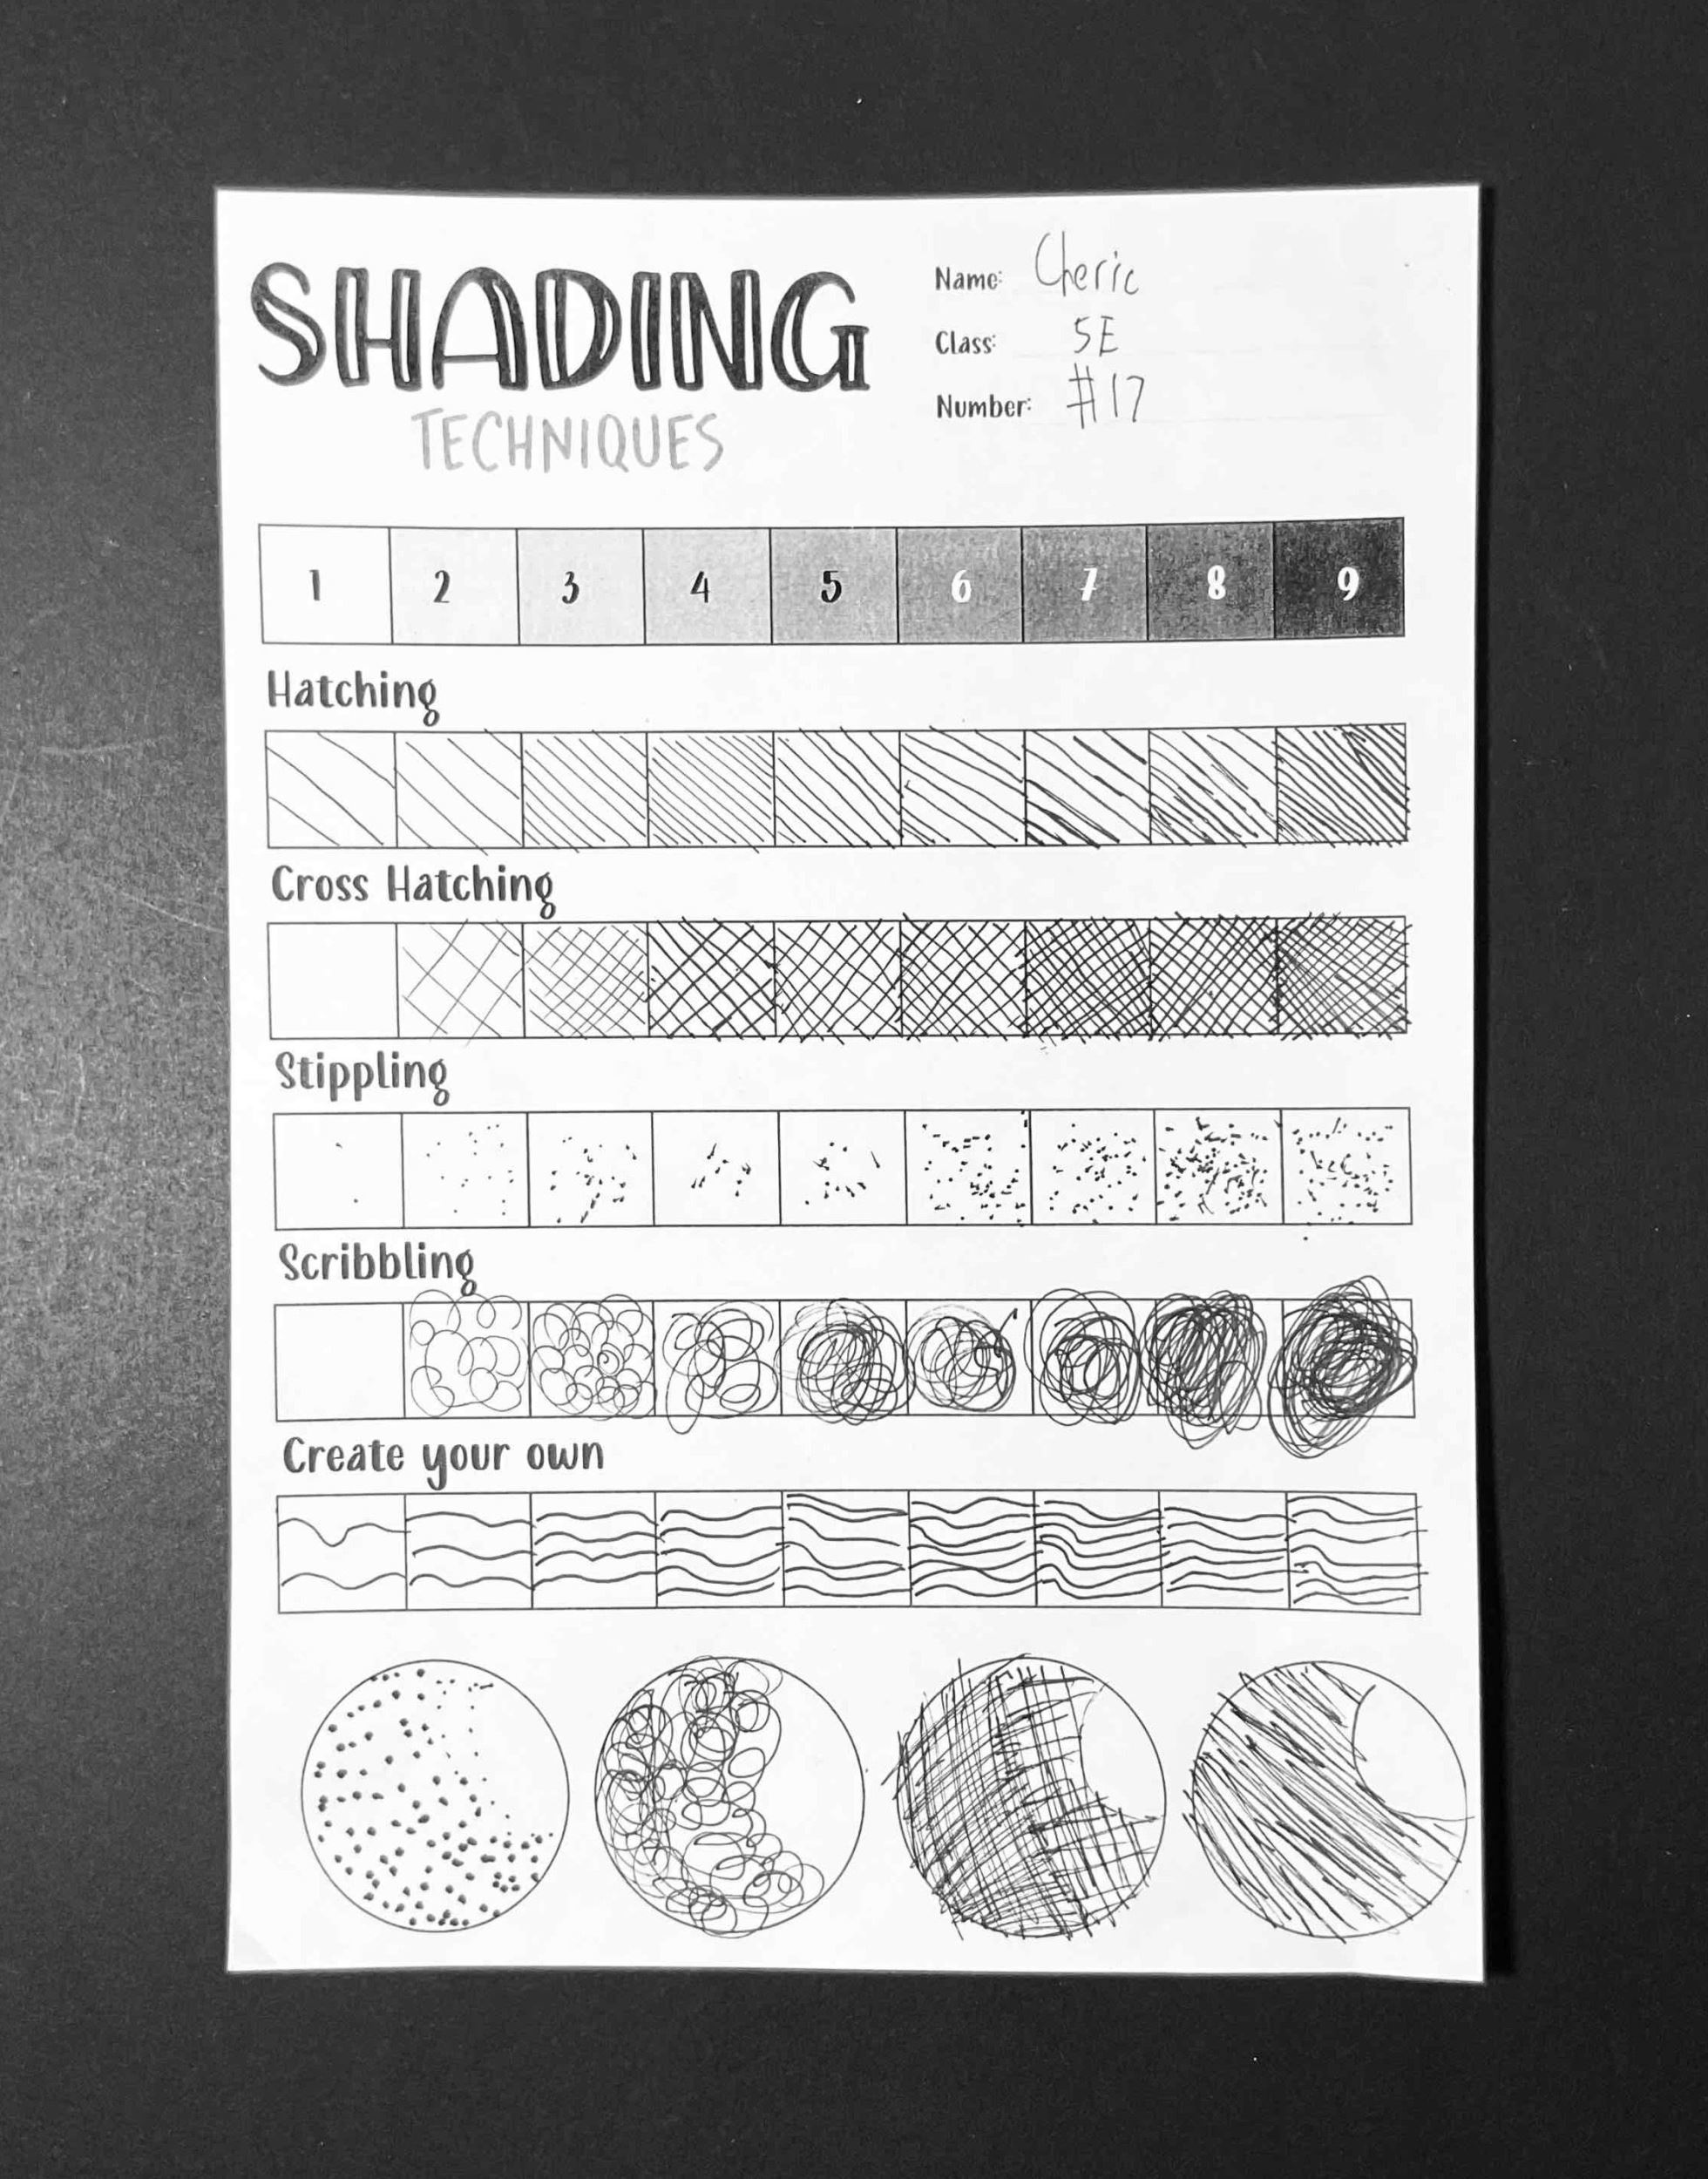 SHADING
TECHNIQUES
Name: Cheric
Class: 5E
Number: #17
1 2 3 4 5 6 7 8 9
Hatching
Cross Hatching
Stippling
Scribbling
Create your own